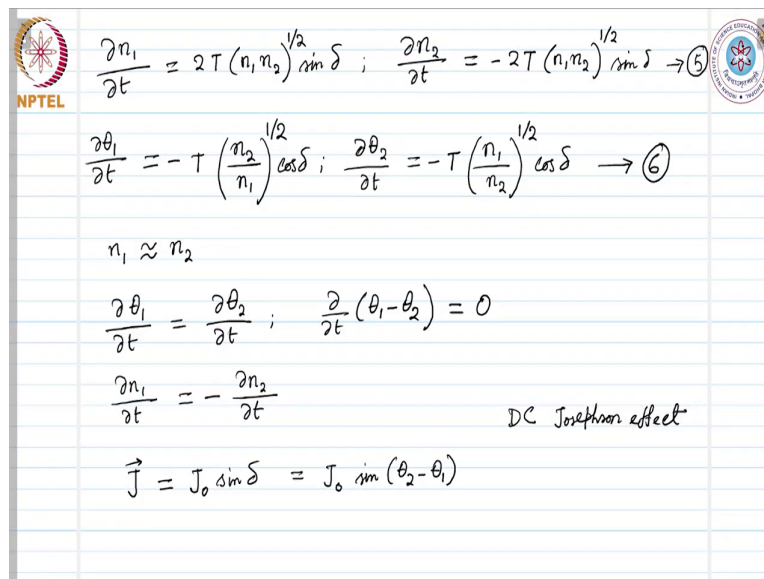 ∂n₁/∂t = 2T(n₁n₂)^1/2 sin δ ; ∂n₂/∂t = -2T(n₁n₂)^1/2 sin δ → ⑤
NPTEL
∂θ₁/∂t = -T(n₂/n₁)^1/2 cos δ ; ∂θ₂/∂t = -T(n₁/n₂)^1/2 cos δ → ⑥
n₁ ≈ n₂
∂θ₁/∂t = ∂θ₂/∂t ; ∂/∂t (θ₁-θ₂) = 0
∂n₁/∂t = - ∂n₂/∂t
DC Josephson effect
J⃗ = J₀ sin δ = J₀ sin (θ₂-θ₁)